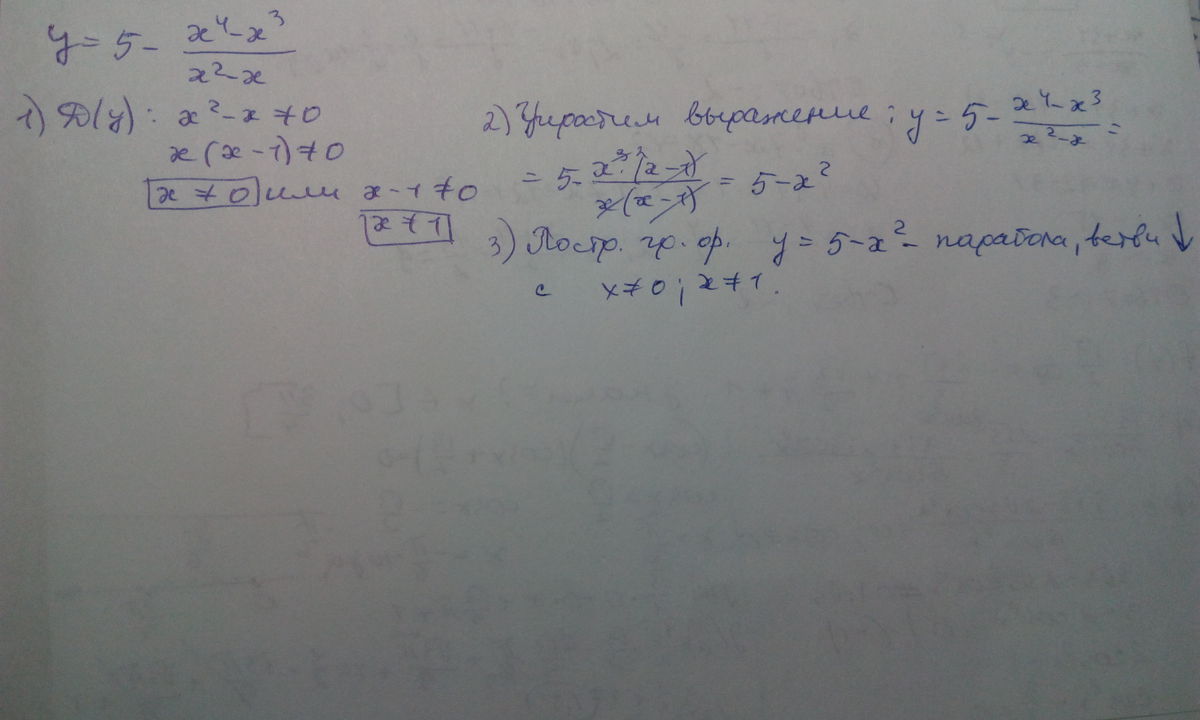 y = 5 - \frac{x^4 - x^3}{x^2 - x}
1) Д(y): x^2 - x ≠ 0
x(x - 1) ≠ 0
x ≠ 0 или x - 1 ≠ 0
x ≠ 1
2) Упростим выражение: y = 5 - \frac{x^4 - x^3}{x^2 - x} =
= 5 - \frac{x^3 · (x - 1)}{x(x - 1)} = 5 - x^2
3) Постр. гр. ф. y = 5 - x^2 - парабола, ветви ↓
с x ≠ 0; x ≠ 1.